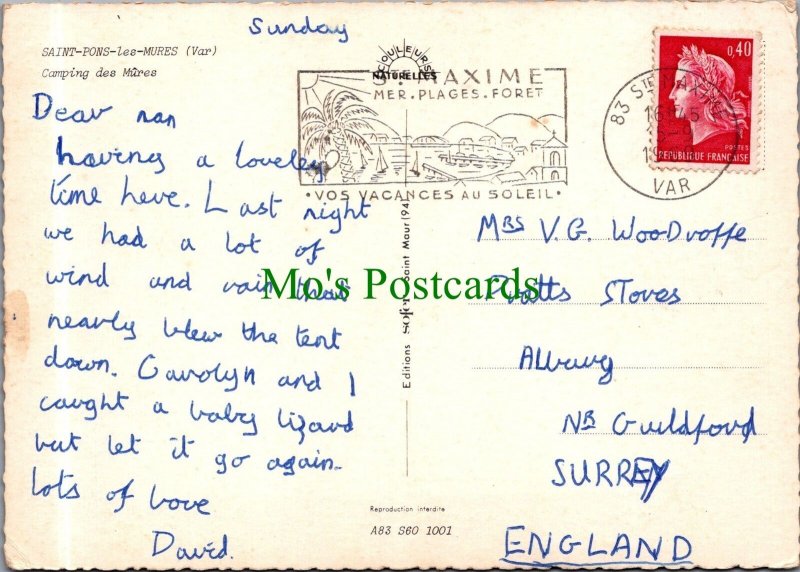 Sunday
SAINT-PONS-les-MURES (Var)
Camping des Mûres
Dear nan
having a loveley
time here. Last night
we had a lot of
wind and rain that
nearly blew the tent
down. Carolyn and I
caught a baby lizard
but let it go again.
lots of love
David.
COULEURS
NATURELLES
STE MAXIME
MER.PLAGES.FORET
•VOS VACANCES AU SOLEIL•
83 STE MAXIME
16H45
VAR
0,40
POSTES
REPUBLIQUE FRANÇAISE
Mo's Postcards
Editions Saint Maur (94)
MRS V.G. WooDroffe
Pratts SToves
Alburg
NR Guildford
SURREY
ENGLAND
Reproduction interdite
A83 S60 1001